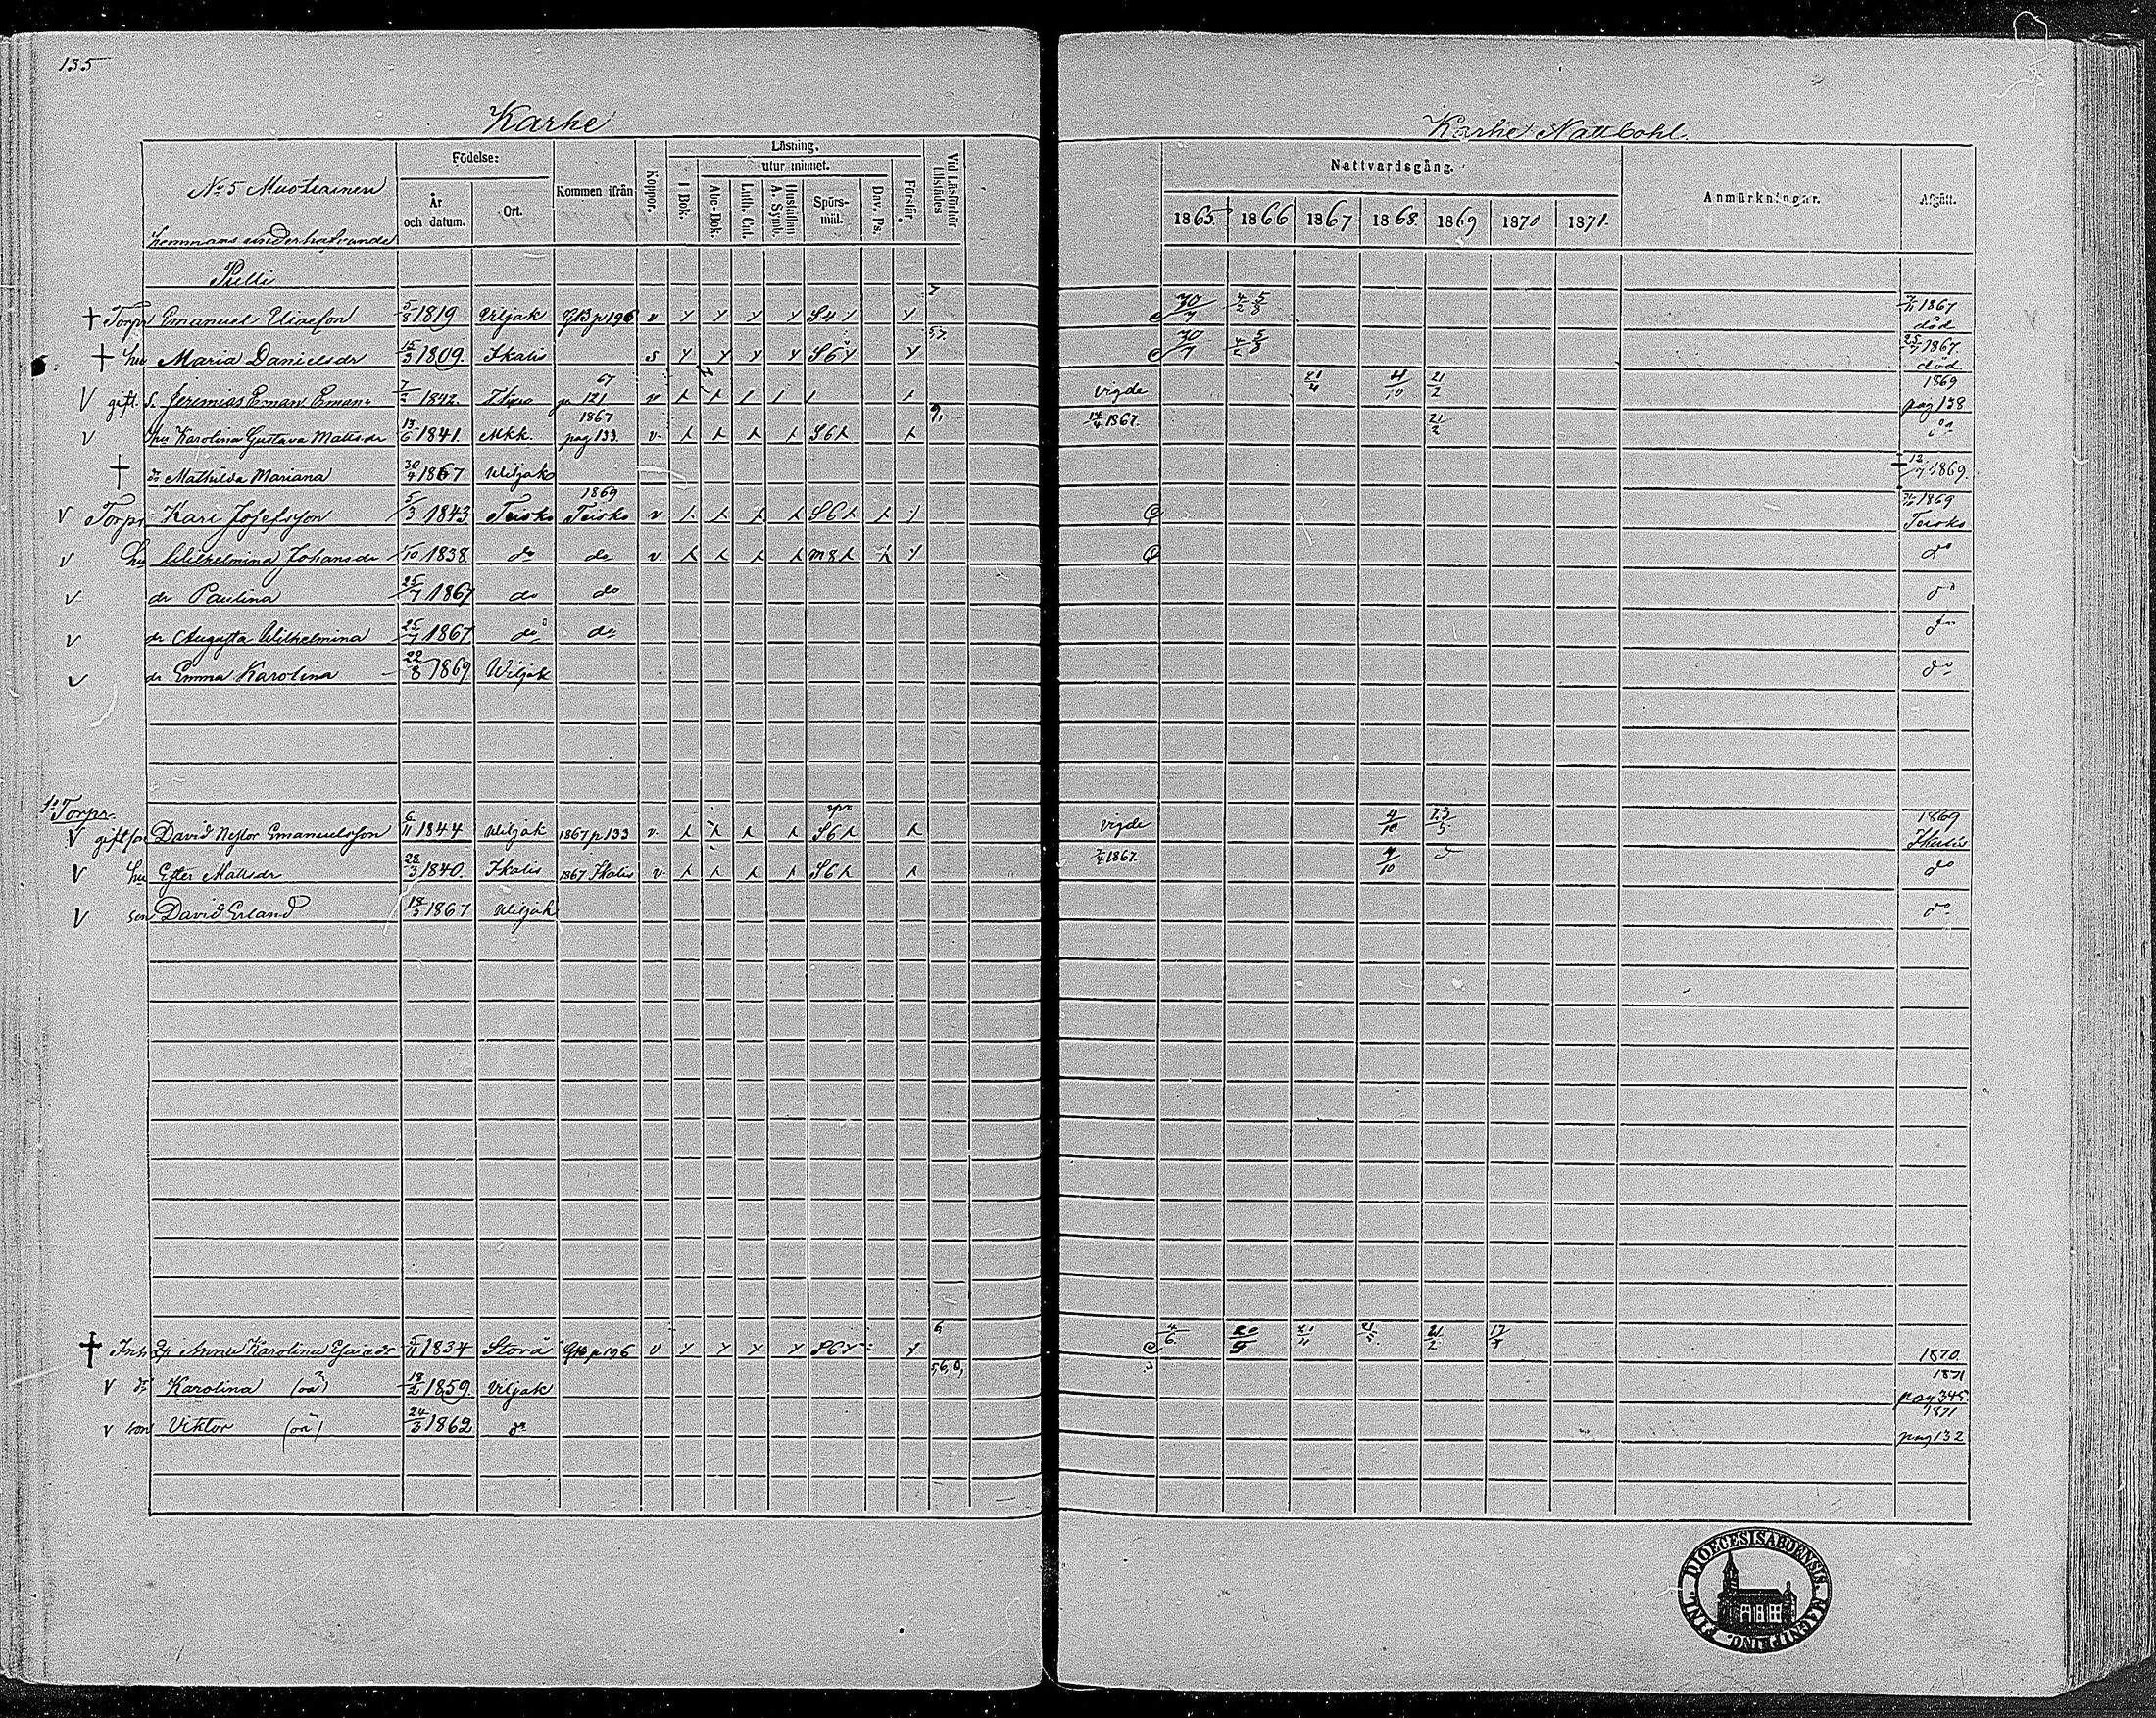 135
Karhe
Karhe Nattbohl.
Födelse:
Läsning.
utur minnet.
Nattvardsgång.
Anmärkningar.
Afgått.
No 5 Muotiainen
År och datum.
Ort.
Kommen ifrån
Koppor.
I Bok.
Abc-Bok.
Luth. Cat.
Hustaflan A. Symb.
Spörsmål.
Dav. Ps.
Förstår.
Vid Läsförhör tillstädes
1865. 1866 1867 1868. 1869 1870 1871.
hemmans underhafvande
Torpr Emanuel 5/8 1819 Viljak p196 v 30/7 4/2 5/8 1867 död
hu Maria Danielsdr 15/3 1809. Ikalis s 30/7 4/2 5/8 25/7 1867. död
gift s. Jeremias Eman Eman 1842. 67 121 vigde 21/4 4/10 21/2 1869 pag 138
hu Karolina Gustava Mattsdr 13/6 1841. Mkk. 1867 pag 133. v. S6 14/4 1867. 21/2
dr Mathilda Mariana 30/7 1867 Wiljak 12/7 1869.
Torpr Karl Josefsson 5/3 1843 Teisko 1869 Teisko v S6 1869 Teisko
hu Wilhelmina Johansdr /10 1838. do do v. m8 do
dr Paulina 25/7 1867 do do do
dr Augusta Wilhelmina 25/7 1867 do do do
dr Emma Karolina 22/8 1869 Wiljak do
Torpr.
gift son David Nestor Emanuelsson 6/11 1844 Wiljak 1867 p133 v. S6 vigde 4/10 23/5 1869 Ikalis
hu Ester Mattsdr 28/3 1840. Ikalis 1867 Ikalis v. S6 1867. 4/10 do
son David Erland 18/5 1867 Wiljak do
Inh Anna Karolina Esaiadr 5/11 1834 Storå p196 v S6 6, 4/6 20/9 21/4 21/2 17/4 1870.
dr Karolina (oä) 18/2 1859. Viljak 5,6,8, 1871 pag 345
son Viktor (oä) 24/3 1862 do 1871 pag 132
FINL. DIOECESIS ABOENSIS. MAGNI PRINC.